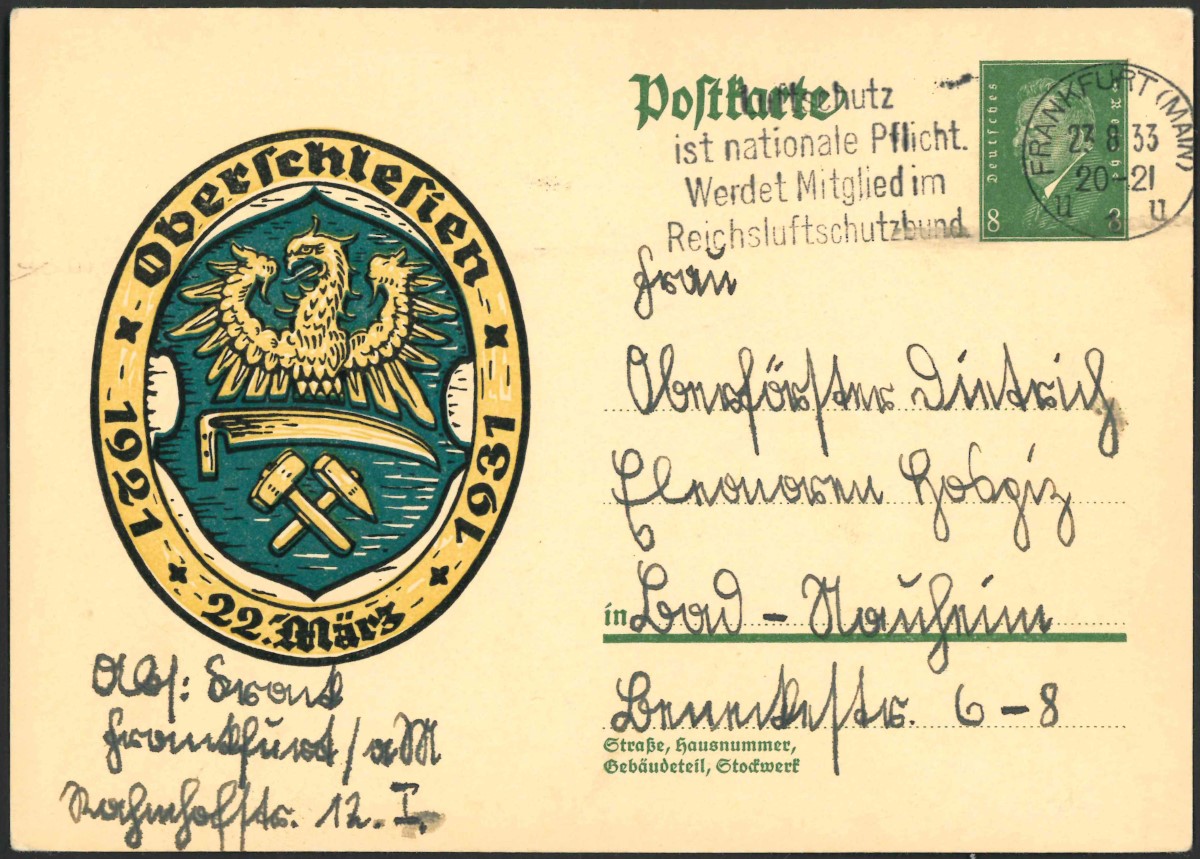 Postkarte
Luftschutz
ist nationale Pflicht.
Werdet Mitglied im
Reichsluftschutzbund
Deutsches
8
FRANKFURT (MAIN)
23 8 33
20-21
Oberschlesien
1921
1931
22. März
Frau
Oberförster Dietrich
Eleonoren Hospiz
in Bad-Nauheim
Beneckestr. 6-8
Straße, Hausnummer,
Gebäudeteil, Stockwerk
Abs:
Frankfurt/aM
12. I.